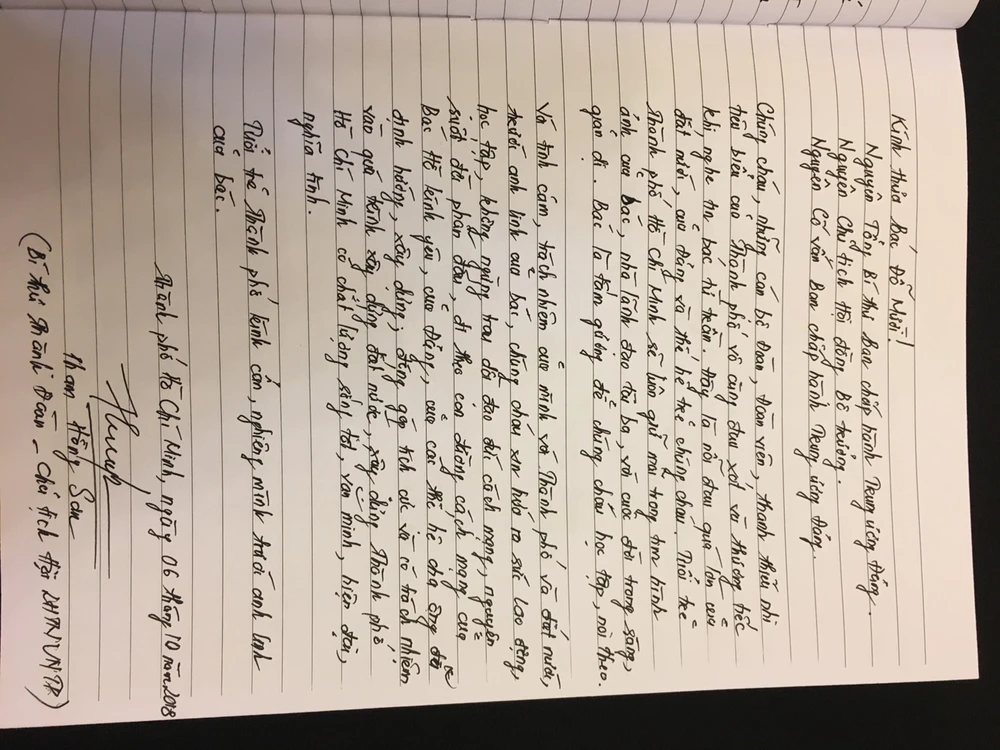 Kính thưa Bác Đỗ Mười!
Nguyên Tổng Bí thư Ban chấp hành Trung ương Đảng.
Nguyên Chủ tịch Hội đồng Bộ trưởng.
Nguyên Cố vấn Ban chấp hành Trung ương Đảng.
Chúng cháu, những cán bộ Đoàn, đoàn viên, thanh thiếu nhi
tiêu biểu của Thành phố vô cùng đau xót và thương tiếc
khi nghe tin bác từ trần. Đây là nỗi đau quá lớn của
đất nước, của Đảng và thế hệ trẻ chúng cháu. Tuổi trẻ
Thành phố Hồ Chí Minh sẽ luôn giữ mãi trong tim hình
ảnh của bác, nhà lãnh đạo tài ba, với cuộc đời trong sáng,
giản dị. Bác là tấm gương để chúng cháu học tập, noi theo.
Với tình cảm, trách nhiệm của mình với Thành phố và đất nước,
trước anh linh của bác, chúng cháu xin hứa ra sức lao động,
học tập, không ngừng trau dồi đạo đức cách mạng, nguyện
suốt đời phấn đấu, đi theo con đường cách mạng của
Bác Hồ kính yêu, của Đảng, của các thế hệ cha ông đã
định hướng, xây dựng; đóng góp tích cực và có trách nhiệm
vào quá trình xây dựng đất nước, xây dựng Thành phố
Hồ Chí Minh có chất lượng sống tốt, văn minh, hiện đại,
nghĩa tình.
Tuổi trẻ Thành phố kính cẩn, nghiêng mình trước anh linh
của bác.
Thành phố Hồ Chí Minh, ngày 06 tháng 10 năm 2018
Phạm Hồng Sơn
(Bí thư Thành Đoàn - Chủ tịch Hội